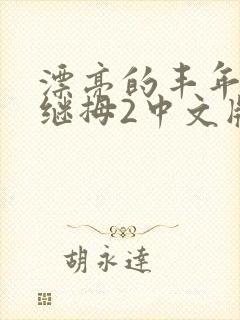 漂亮的丰年
继拇2中文
胡永達